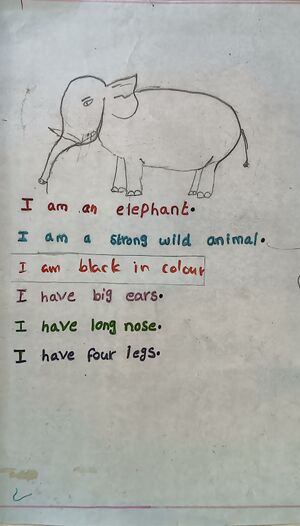 I am an elephant.
I am a strong wild animal.
I am black in colour
I have big ears.
I have long nose.
I have four legs.